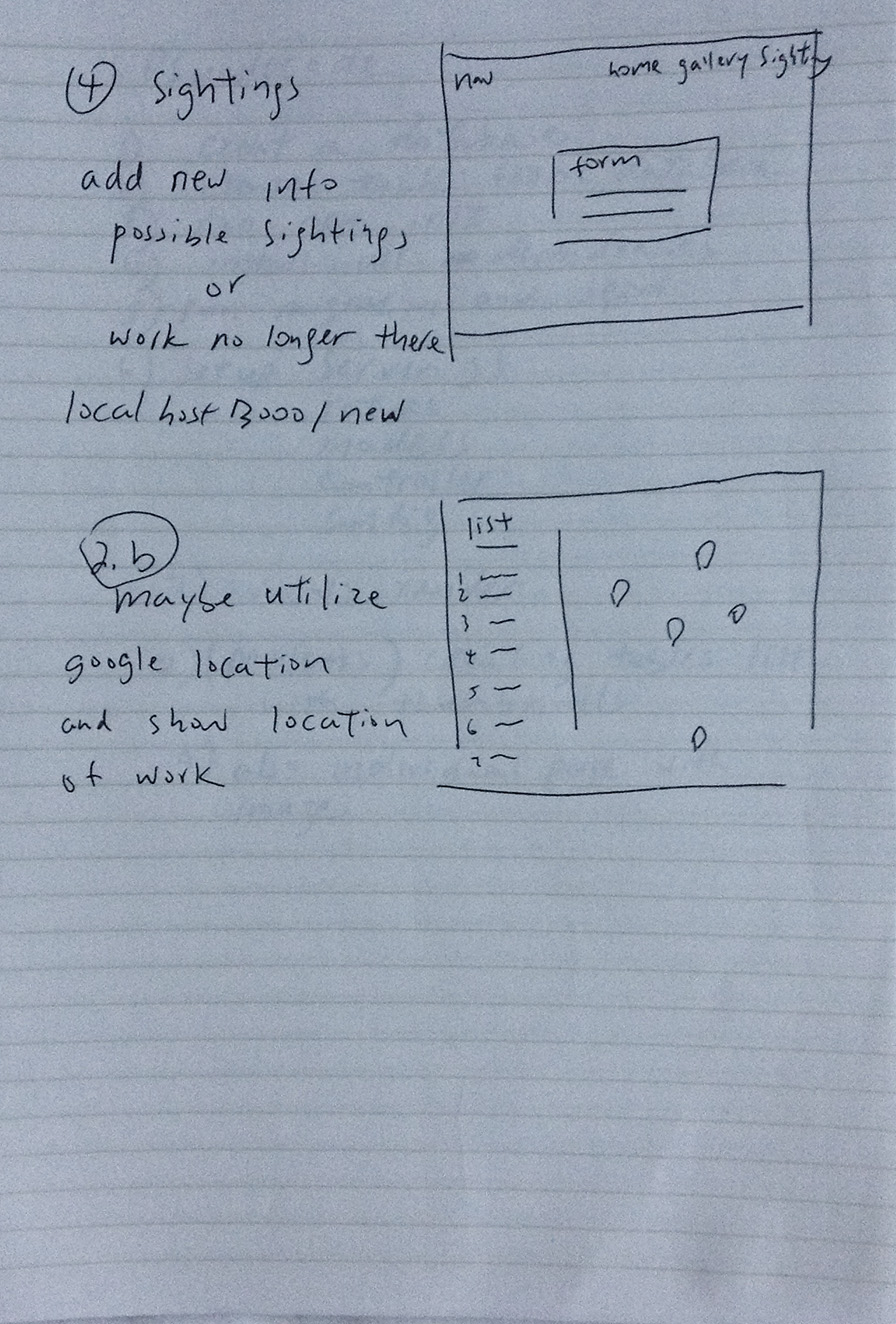 ④ Sightings
add new info
possible sightings
or
work no longer there
localhost 3000/new
nav home gallery Sighting
form
2.b
maybe utilize
google location
and show location
of work
list
1
2
3
4
5
6
7